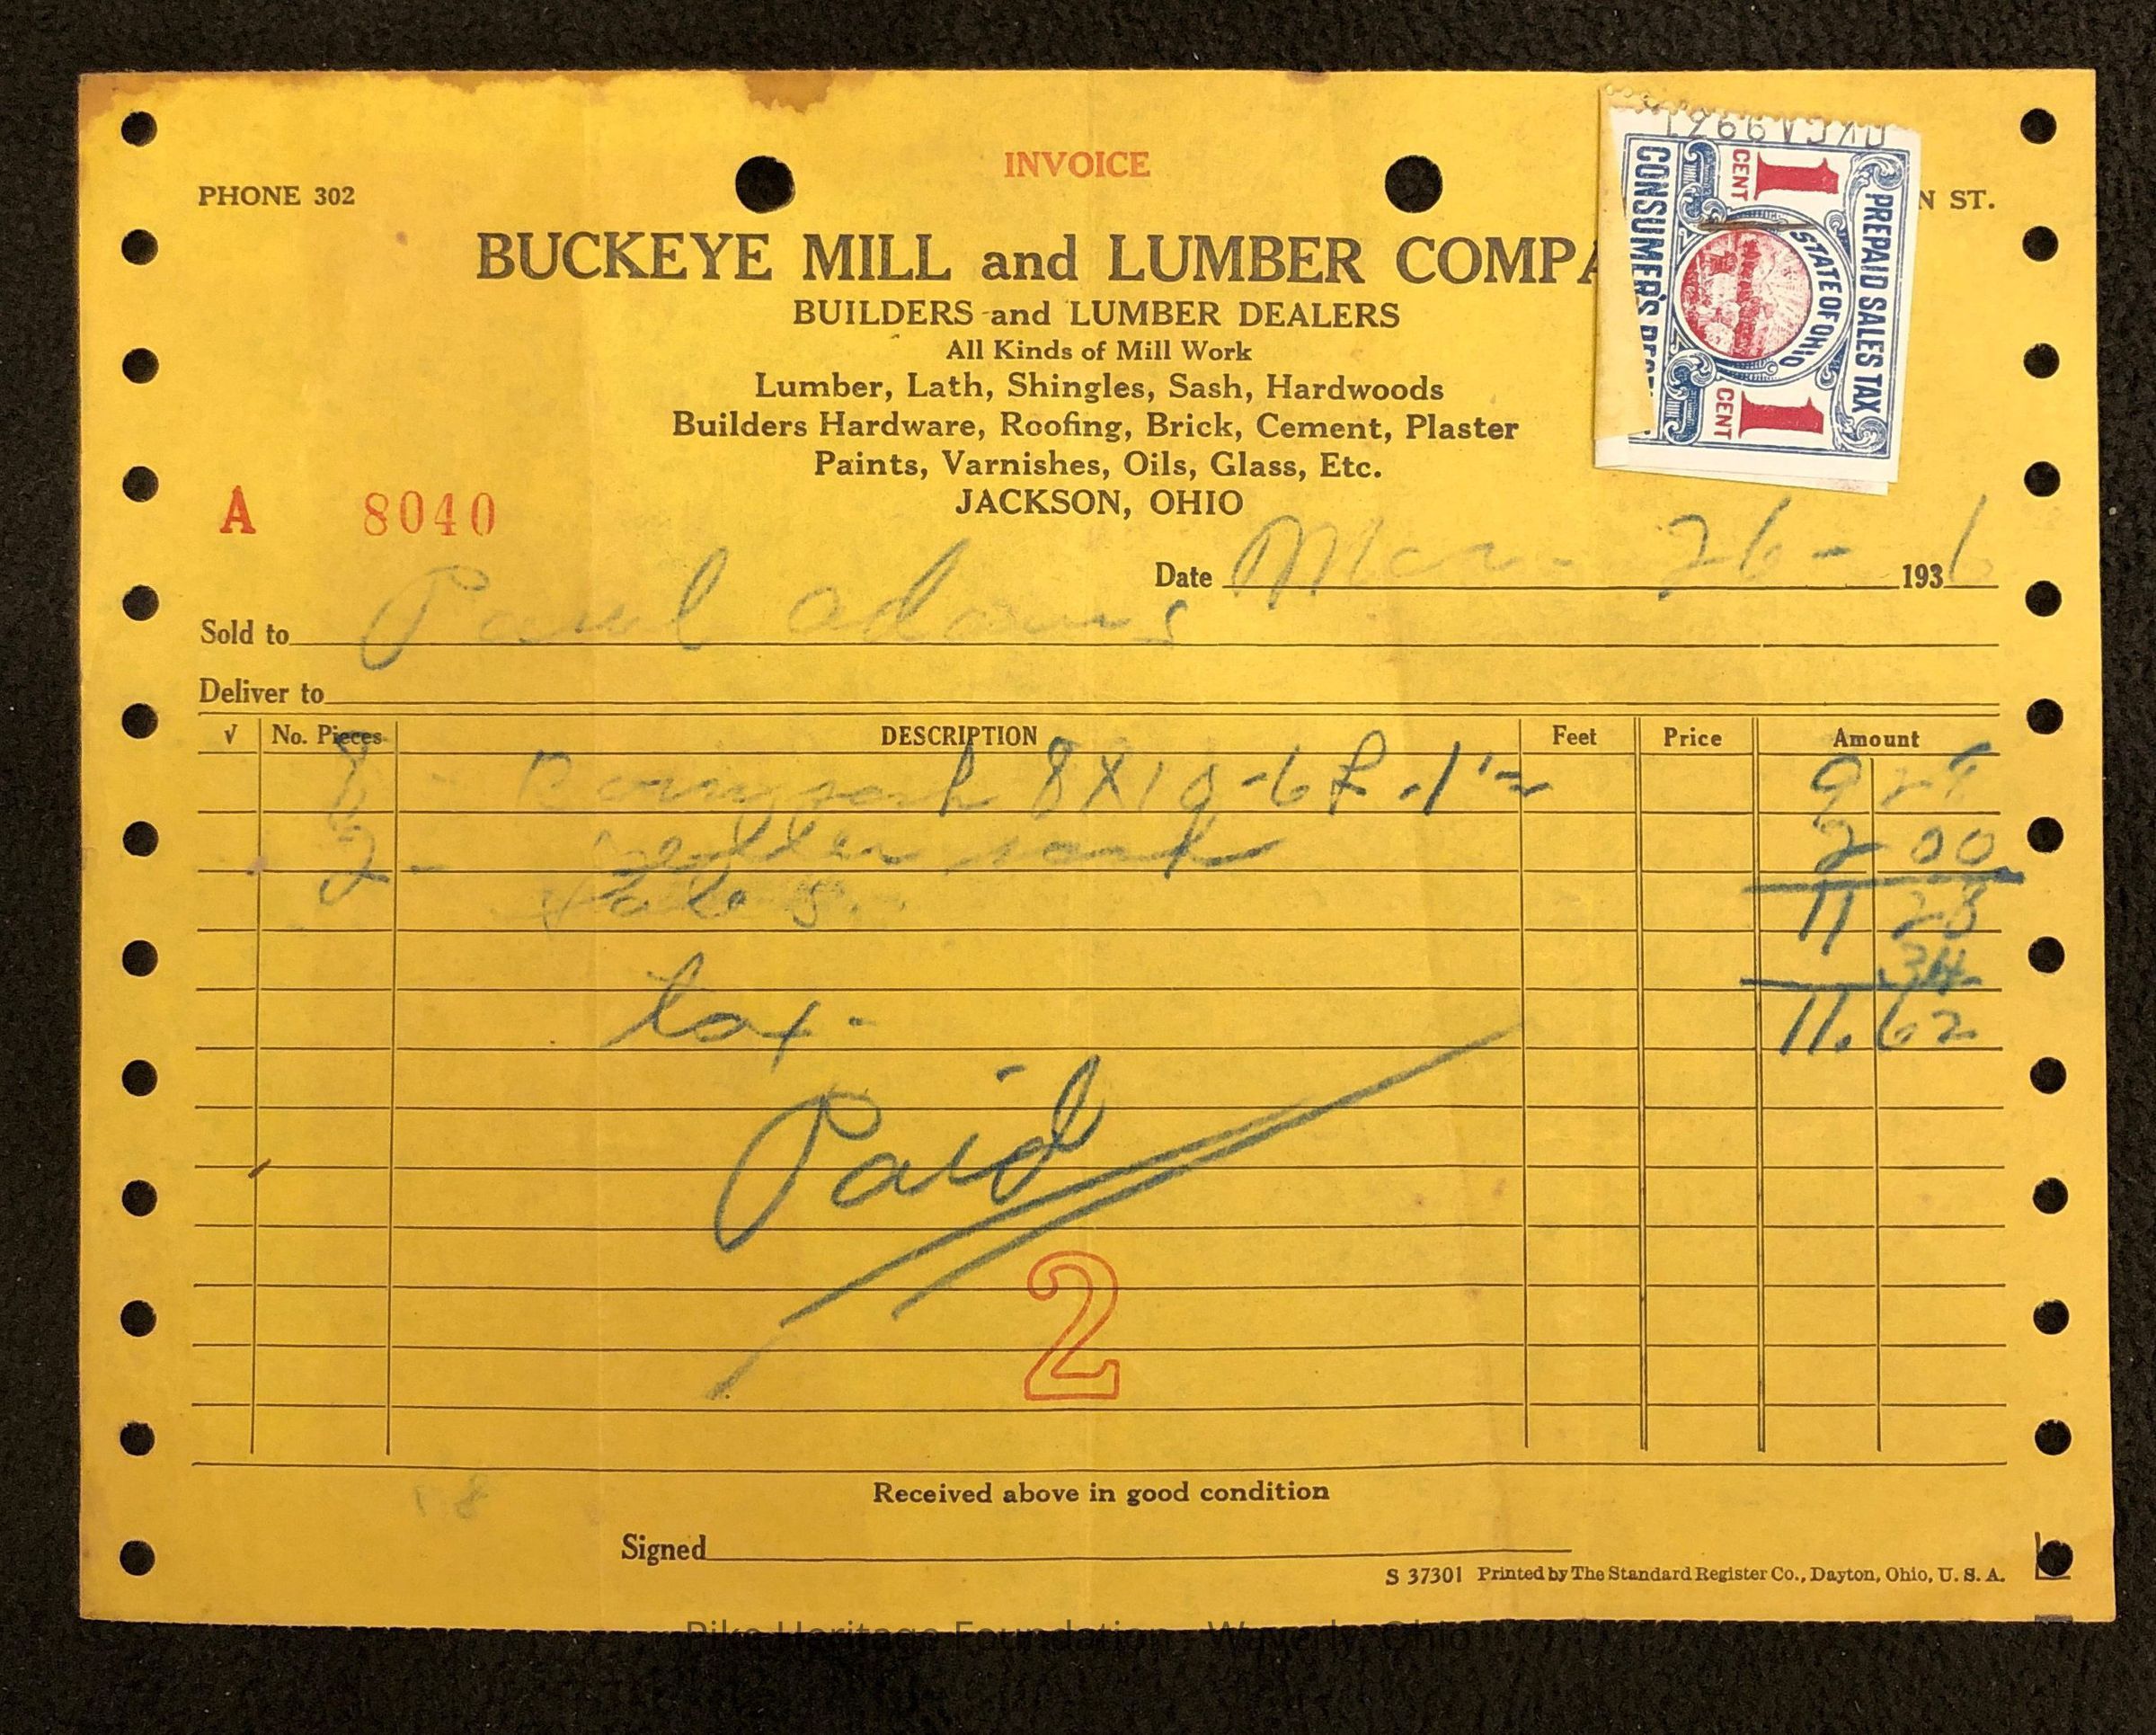 INVOICE
PHONE 302
N ST.
BUCKEYE MILL and LUMBER COMPA
BUILDERS and LUMBER DEALERS
All Kinds of Mill Work
Lumber, Lath, Shingles, Sash, Hardwoods
Builders Hardware, Roofing, Brick, Cement, Plaster
Paints, Varnishes, Oils, Glass, Etc.
JACKSON, OHIO
PREPAID SALES TAX
STATE OF OHIO
1 CENT
1 CENT
CONSUMER'S
A 8040
Date Mar - 26 - 1936
Sold to Paul Adams
Deliver to
√ No. Pieces DESCRIPTION Feet Price Amount
8 - sash 8X10-6
2 - sash 2 00
11 28
34
tax - 11.62
Paid
2
Received above in good condition
Signed
S 37301 Printed by The Standard Register Co., Dayton, Ohio, U. S. A.
Pike Heritage Foundation - Waverly, Ohio